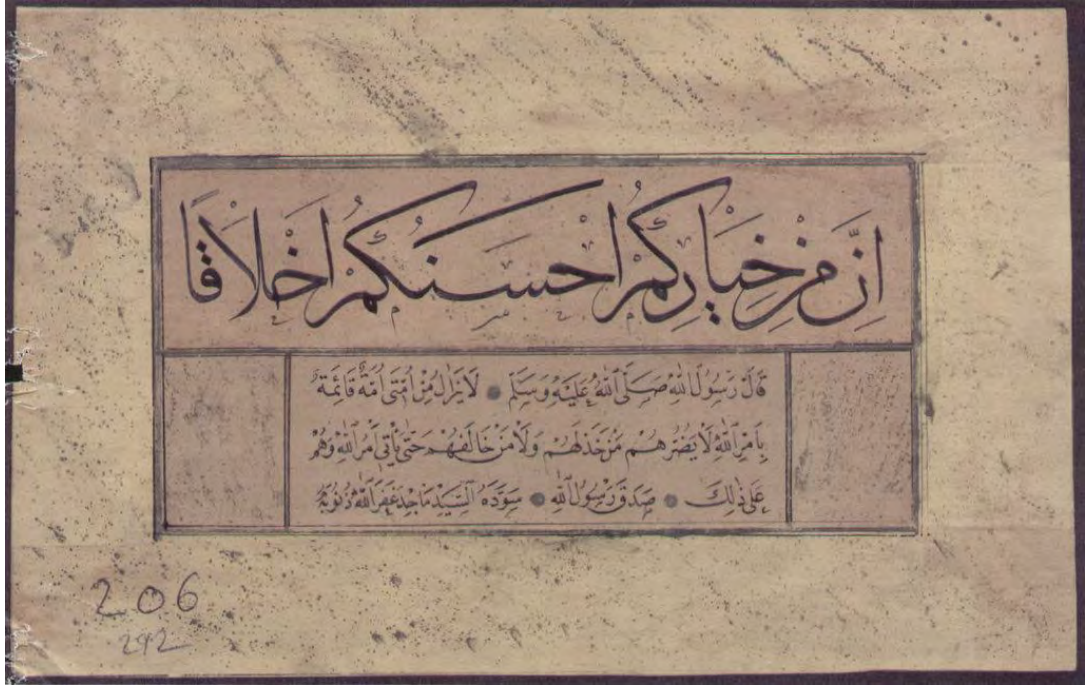 اِنَّ مِنْ خِيَارِكُمْ اَحْسَنَكُمْ اَخْلَاقًا
قَالَ رَسُولُ اللهِ صَلَّى اللهُ عَلَيْهِ وَسَلَّمَ • لَا يَزَالُ مِنْ اُمَّتِى اُمَّةٌ قَائِمَةٌ
بِاَمْرِ اللهِ لَا يَضُرُّهُمْ مَنْ خَذَلَهُمْ وَلَا مَنْ خَالَفَهُمْ حَتَّى يَأْتِىَ اَمْرُ اللهِ وَهُمْ
عَلَى ذٰلِكَ • صَدَقَ رَسُولُ اللهِ • سَوَّدَهُ السَّيِّدْ مَاجِدْ غَفَرَ اللهُ ذُنُوبَهُ
206
292